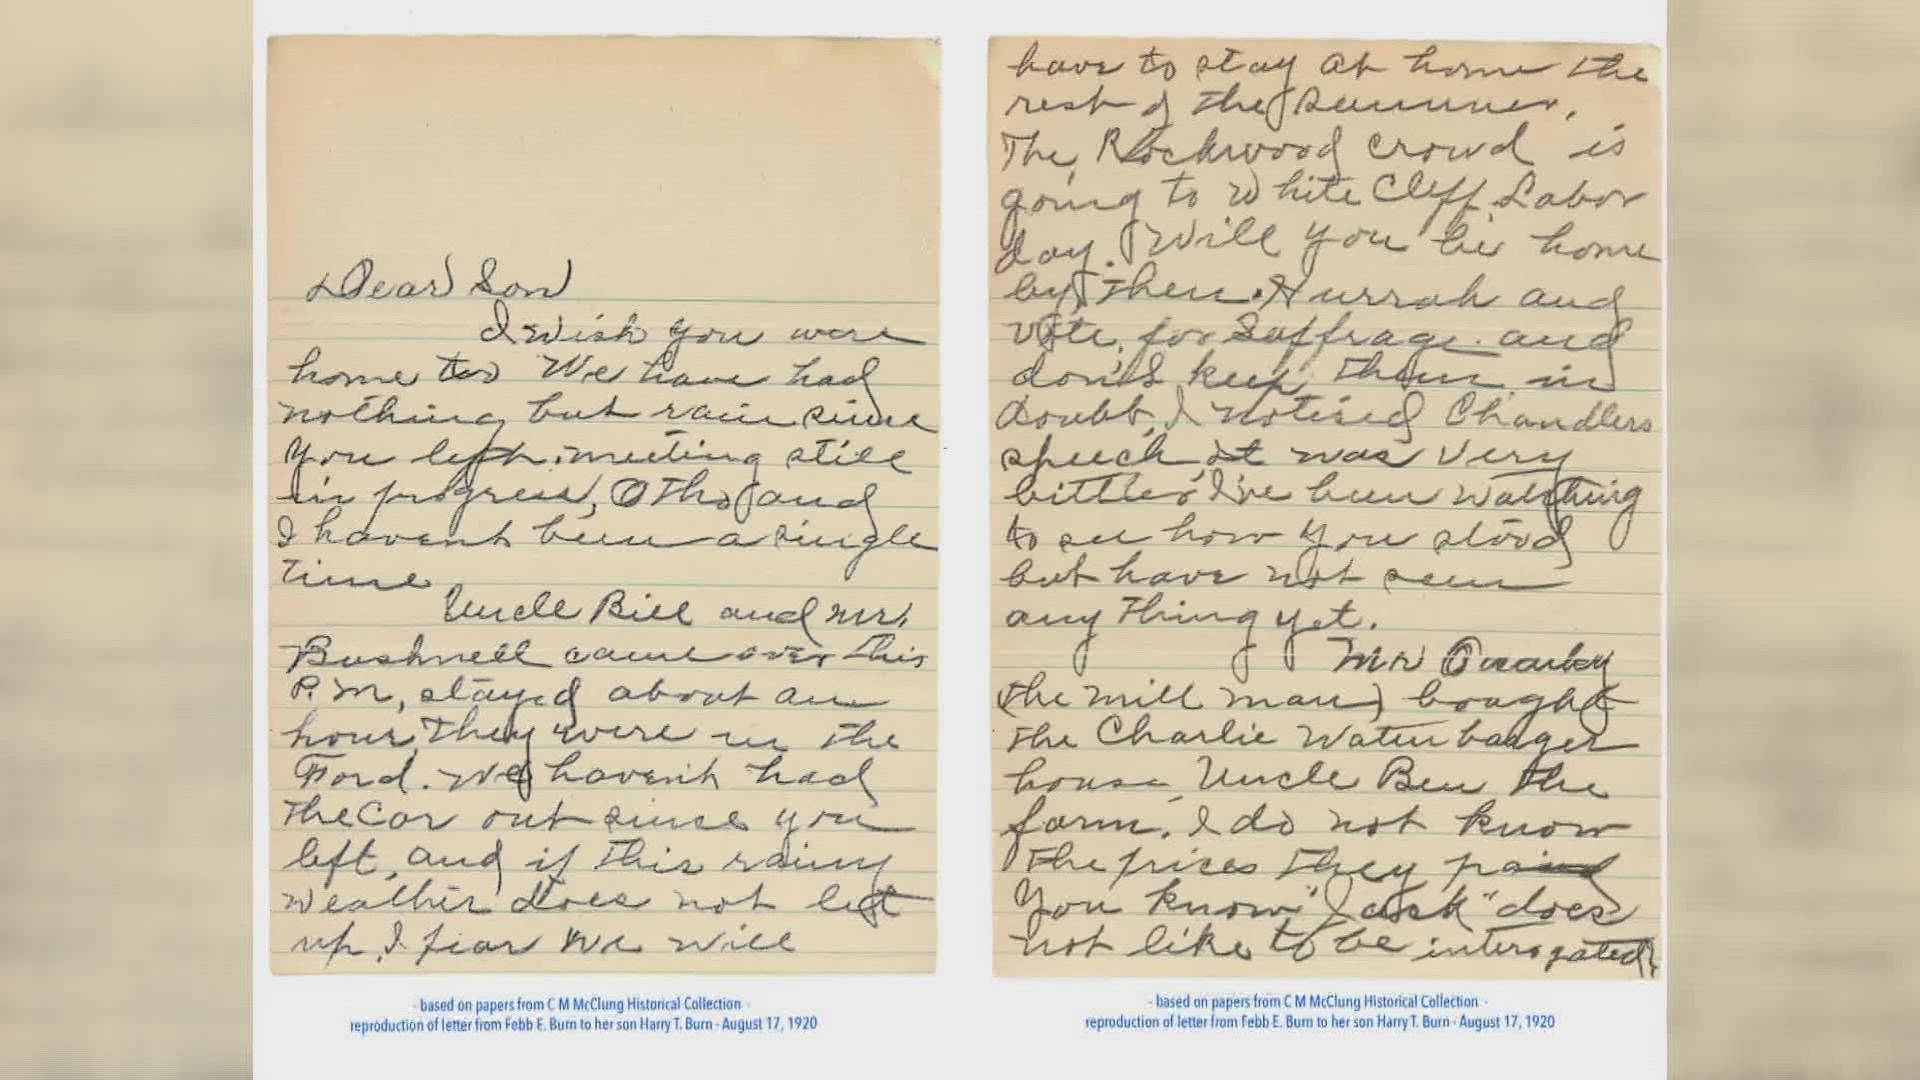 Dear Son
I wish you were
home too We have had
nothing but rain since
you left, meeting still
in progress, Otho and
I havent been a single
time
Uncle Bill and Mr.
Bushnell came over this
P.M, stayed about an
hour, They were in the
Ford. We haven't had
the Car out since you
left, and if this rainy
weather does not let
up, I fear we will
- based on papers from C M McClung Historical Collection -
reproduction of letter from Febb E. Burn to her son Harry T. Burn - August 17, 1920
have to stay at home the
rest of the summer.
The Rockwood crowd is
going to White Cliff Labor
day. Will you be home
by then. Hurrah and
Vote for Suffrage and
don't keep them in
doubt, I noticed Chandlers
speech, it was very
bitter, I've been watching
to see how you stood
but have not seen
any thing yet.
Mr
(the mill man) bought
the Charlie
house, Uncle Ben the
farm. I do not know
the prices they paid
You know "Jack" does
not like to be interogated.
- based on papers from C M McClung Historical Collection -
reproduction of letter from Febb E. Burn to her son Harry T. Burn - August 17, 1920